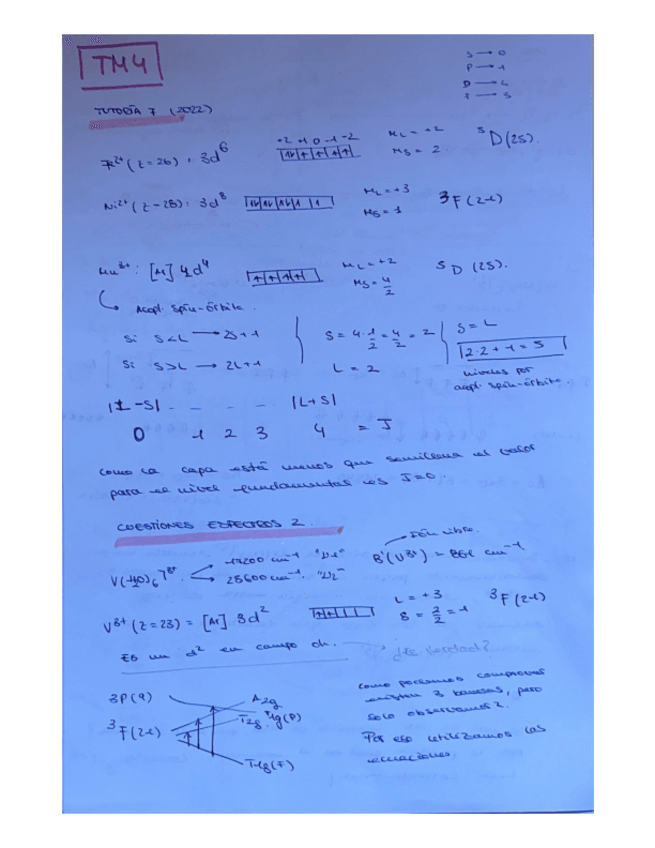 TM4
S → 0
P → 1
D → 2
F → 3
TUTORÍA 7 (2022)
Fe²⁺ (Z=26) : 3d⁶ +2 +1 0 -1 -2 M_L = +2 M_S = 2 ⁵D (25).
Ni²⁺ (Z=28) : 3d⁸ M_L = +3 M_S = 1 ³F (21)
Mn³⁺ : [Ar] d⁴ M_L = +2 M_S = 4/2 ⁵D (25).
Acopl. Spin-Órbita.
Si S<L → 2S+1 S = 4·1/2 = 4/2 = 2 S = L
Si S>L → 2L+1 L = 2 2·2+1 = 5
niveles por
acopl. spin-órbita
|L-S| - - - - |L+S|
0 1 2 3 4 = J
como la capa está menos que semillena el valor
para el nivel fundamental es J=0
CUESTIONES ESPECTROS 2.
V(H₂O)₆]³⁺ 17200 cm⁻¹ "ν1" ión libre.
25600 cm⁻¹ "ν2" B (V³⁺) = 861 cm⁻¹
V³⁺ (Z=23) = [Ar] 3d² L = +3 S = 2/2 = 1 ³F (21)
Es un d² en campo oh. ¿Es verdad?
3P (9) A2g
³F (21) T2g T1g(P)
T1g(F)
como podemos comprobar
existen 3 bandas, pero
solo observamos 2.
Por eso utilizamos las
ecuaciones.